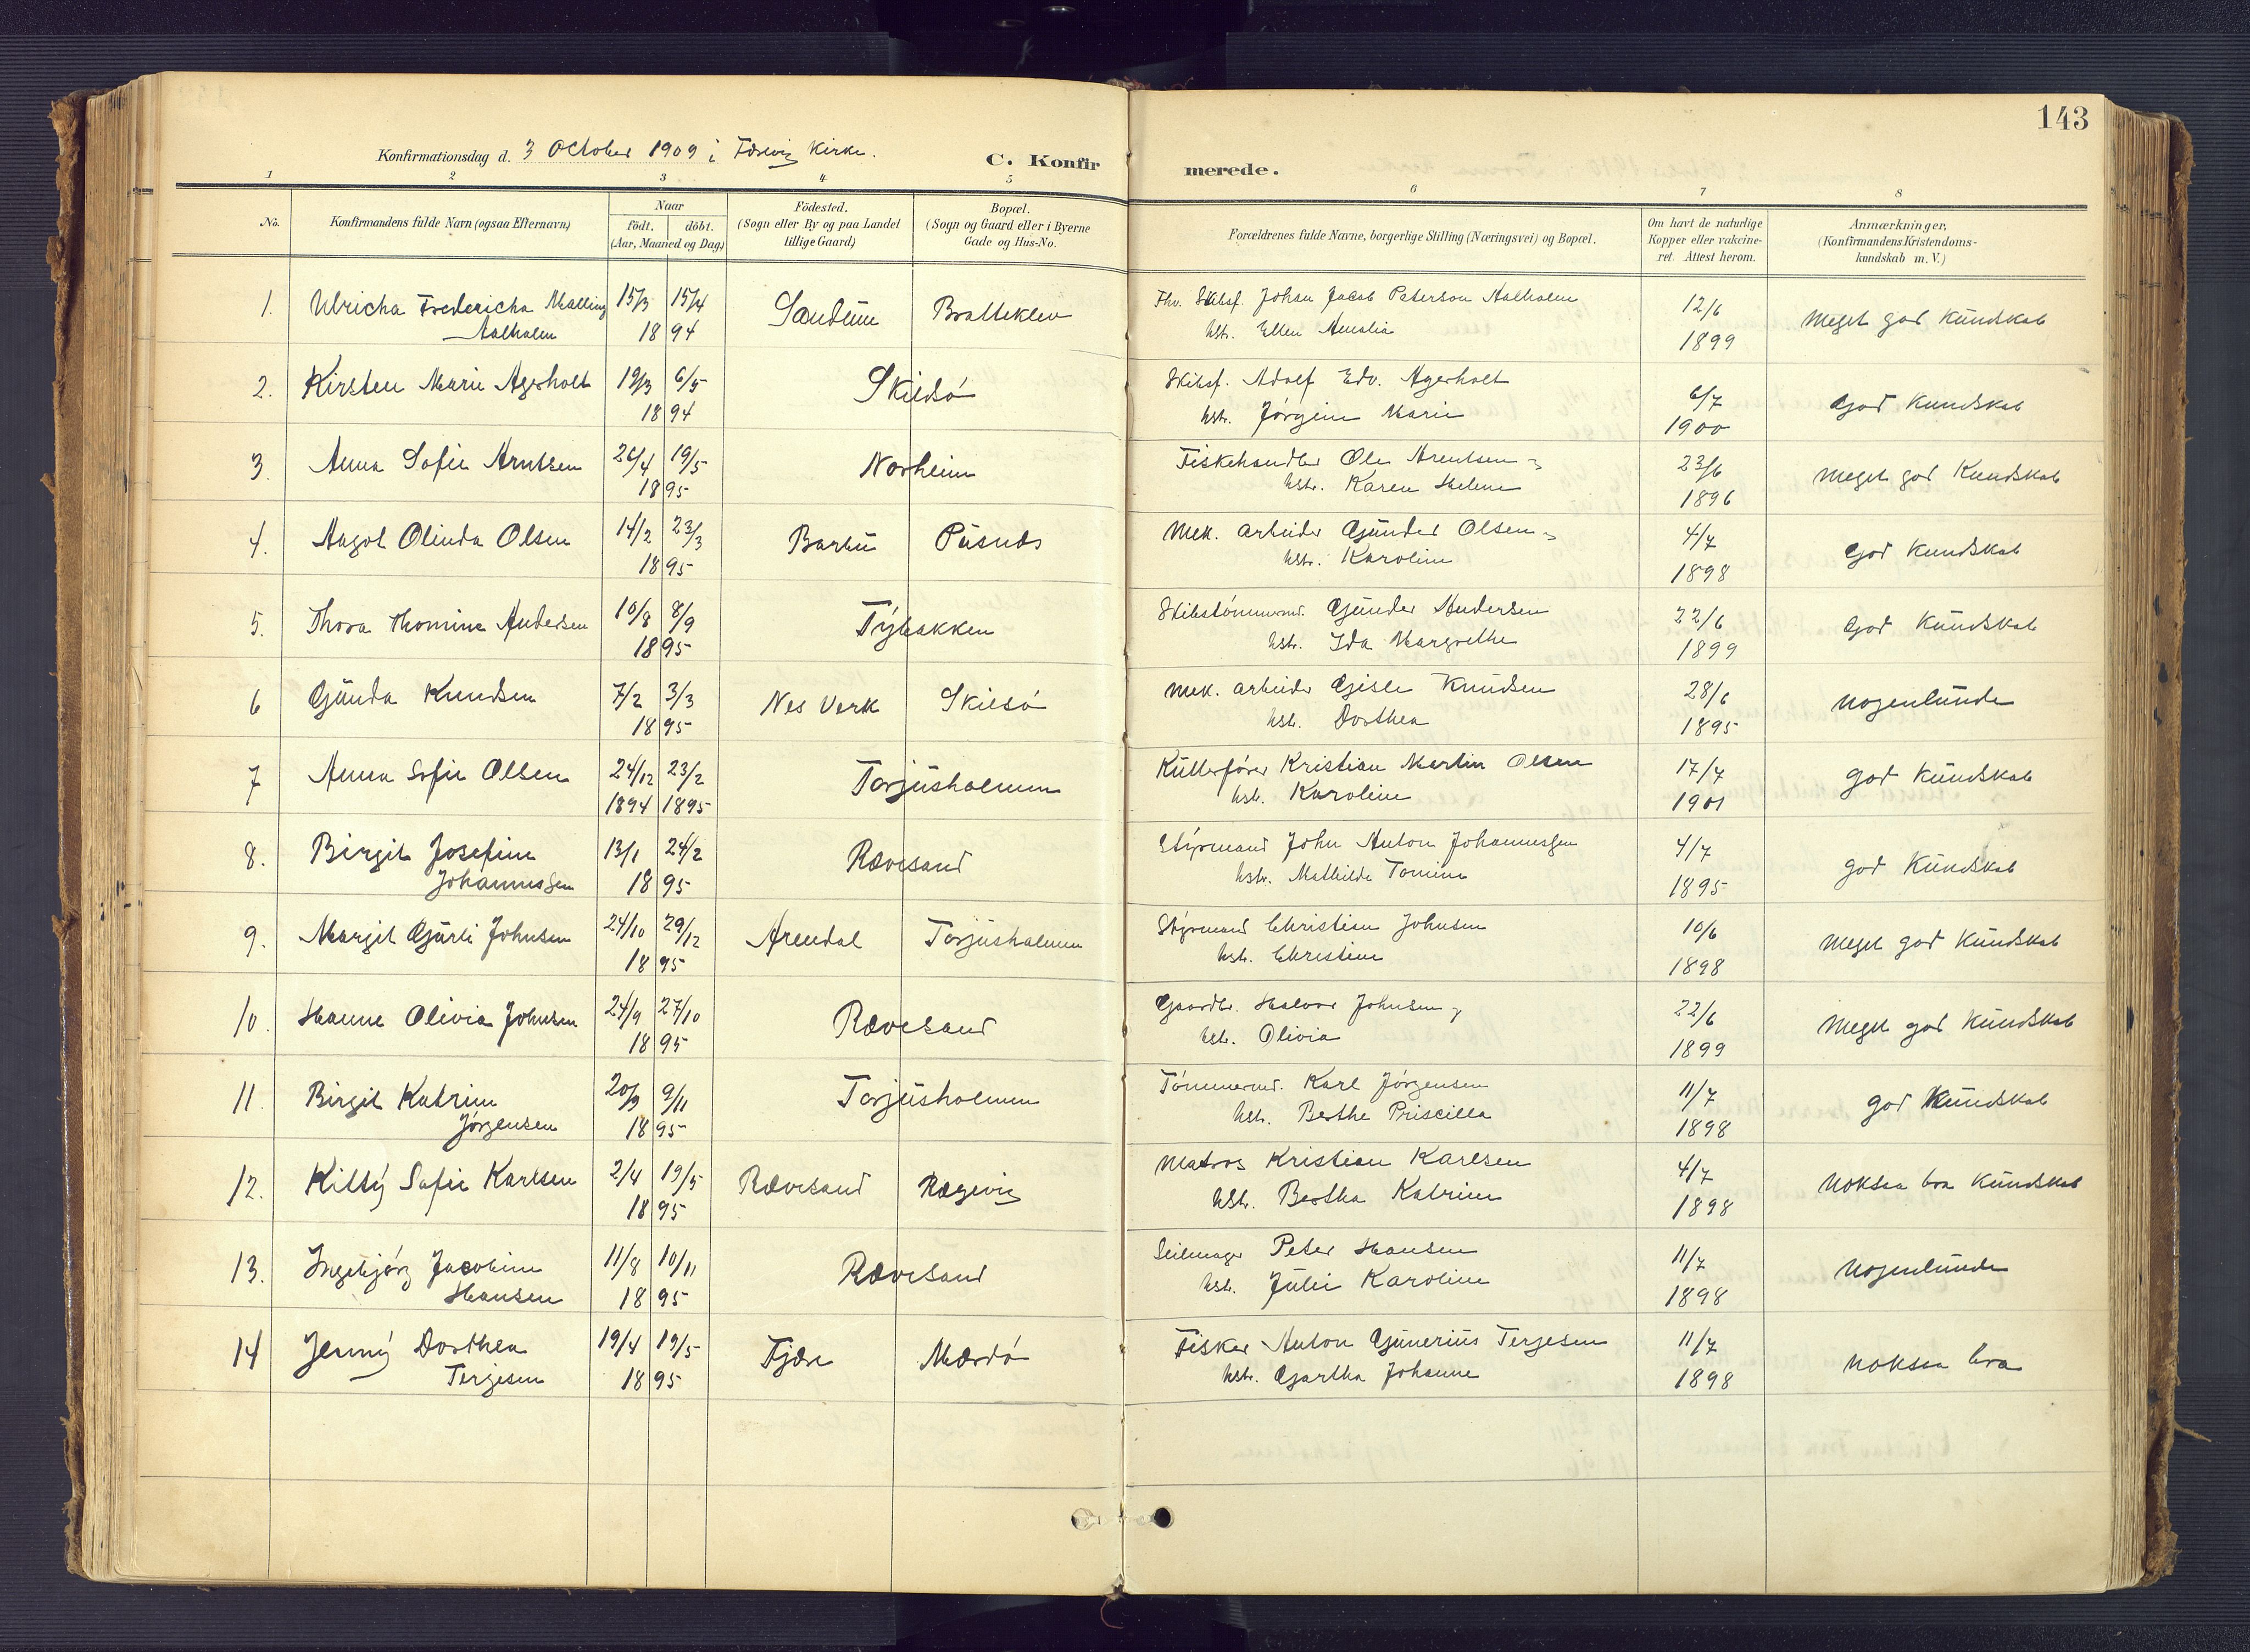 143
Konfirmationsdag d. 3 October 1909 i Færvig Kirke.
C. Konfir
merede.
1 2 3 4 5 6 7 8
No.
Konfirmandens fulde Navn (ogsaa Efternavn)
Naar
födt. döbt.
(Aar, Maaned og Dag)
Födested.
(Sogn eller By og paa Landet
tillige Gaard)
Bopæl.
(Sogn og Gaard eller i Byerne
Gade og Hus-No.
Forældrenes fulde Navne, borgerlige Stilling (Næringsvei) og Bopæl.
Om havt de naturlige
Kopper eller vakcine-
ret. Attest herom.
Anmærkninger,
(Konfirmandens Kristendoms-
kundskab m. V.)
1. Ulricha Fredericha Malling 15/3 15/4 Sandum Bratteklev Fhv. Skibsf. Johan Jacob Peterson Aalholm 12/6 Meget god Kundskab
Aalholm 18 94 hstr. Ellen Amalia 1899
2. Kirsten Marie Agerholt 19/3 6/5 Skilsö Skibsf. Adolf Edv. Agerholt 6/7 God Kundskab
18 94 hstr. Jörgine Marie 1900
3. Anna Sofie Arntsen 26/4 19/5 Norheim Fiskehandler Ole Arentsen 23/6 Meget god Kundskab
18 95 hstr. Karen Helene 1896
4. Aagot Olinda Olsen 14/2 23/3 Barbu Pusnes Mek. arbeider Gunder Olsen 4/7 God Kundskab
18 95 hstr. Karoline 1898
5. Thora Thomine Andersen 10/8 8/9 Tybakken Skibstömmermd. Gunder Andersen 22/6 God Kundskab
18 95 hstr. Ida Margrethe 1899
6 Gunda Knudsen 7/2 3/3 Nes Verk Skilsö Mek. arbeider Gisle Knudsen 28/6 nogenlunde
18 95 hstr. Dorthea 1895
7 Anna Sofie Olsen 24/12 23/2 Torjusholmen Kutterförer Kristian Martin Olsen 17/7 god Kundskab
1894 1895 hstr. Karoline 1901
8. Birgit Josefine 13/1 24/2 Rævesand Styrmand John Anton Johannessen 4/7 god Kundskab
Johannessen 18 95 hstr. Mathilde Tomine 1895
9. Margit Gurli Johnsen 24/10 29/12 Arendal Torjusholmen Styrmand Christian Johnsen 10/6 Meget god Kundskab
18 95 hstr. Christine 1898
10. Hanne Olivia Johnsen 24/9 27/10 Rævesand Gaardbr. Halvor Johnsen 22/6 Meget god Kundskab
18 95 hstr. Olivia 1899
11. Birgit Katrine 20/9 9/11 Torjusholmen Tömmermd. Karl Jörgensen 11/7 god Kundskab
Jörgensen 18 95 hstr. Berthe Priscilla 1898
12. Kitty Sofie Karlsen 2/4 19/5 Rævesand Rægevig Matros Kristian Karlsen 4/7 noksaa bra Kundskab
18 95 hstr. Bertha Katrine 1898
13. Ingebjörg Jacobine 11/8 10/11 Rævesand Seilmager Peter Hansen 11/7 Nogenlunde
Hansen 18 95 hstr. Julie Karoline 1898
14 Jenny Dorthea 19/4 19/5 Fjære Mærdö Fisker Anton Gunerius Terjesen 11/7 noksaa bra
Terjesen 18 95 hstr. Gartha Johanne 1898